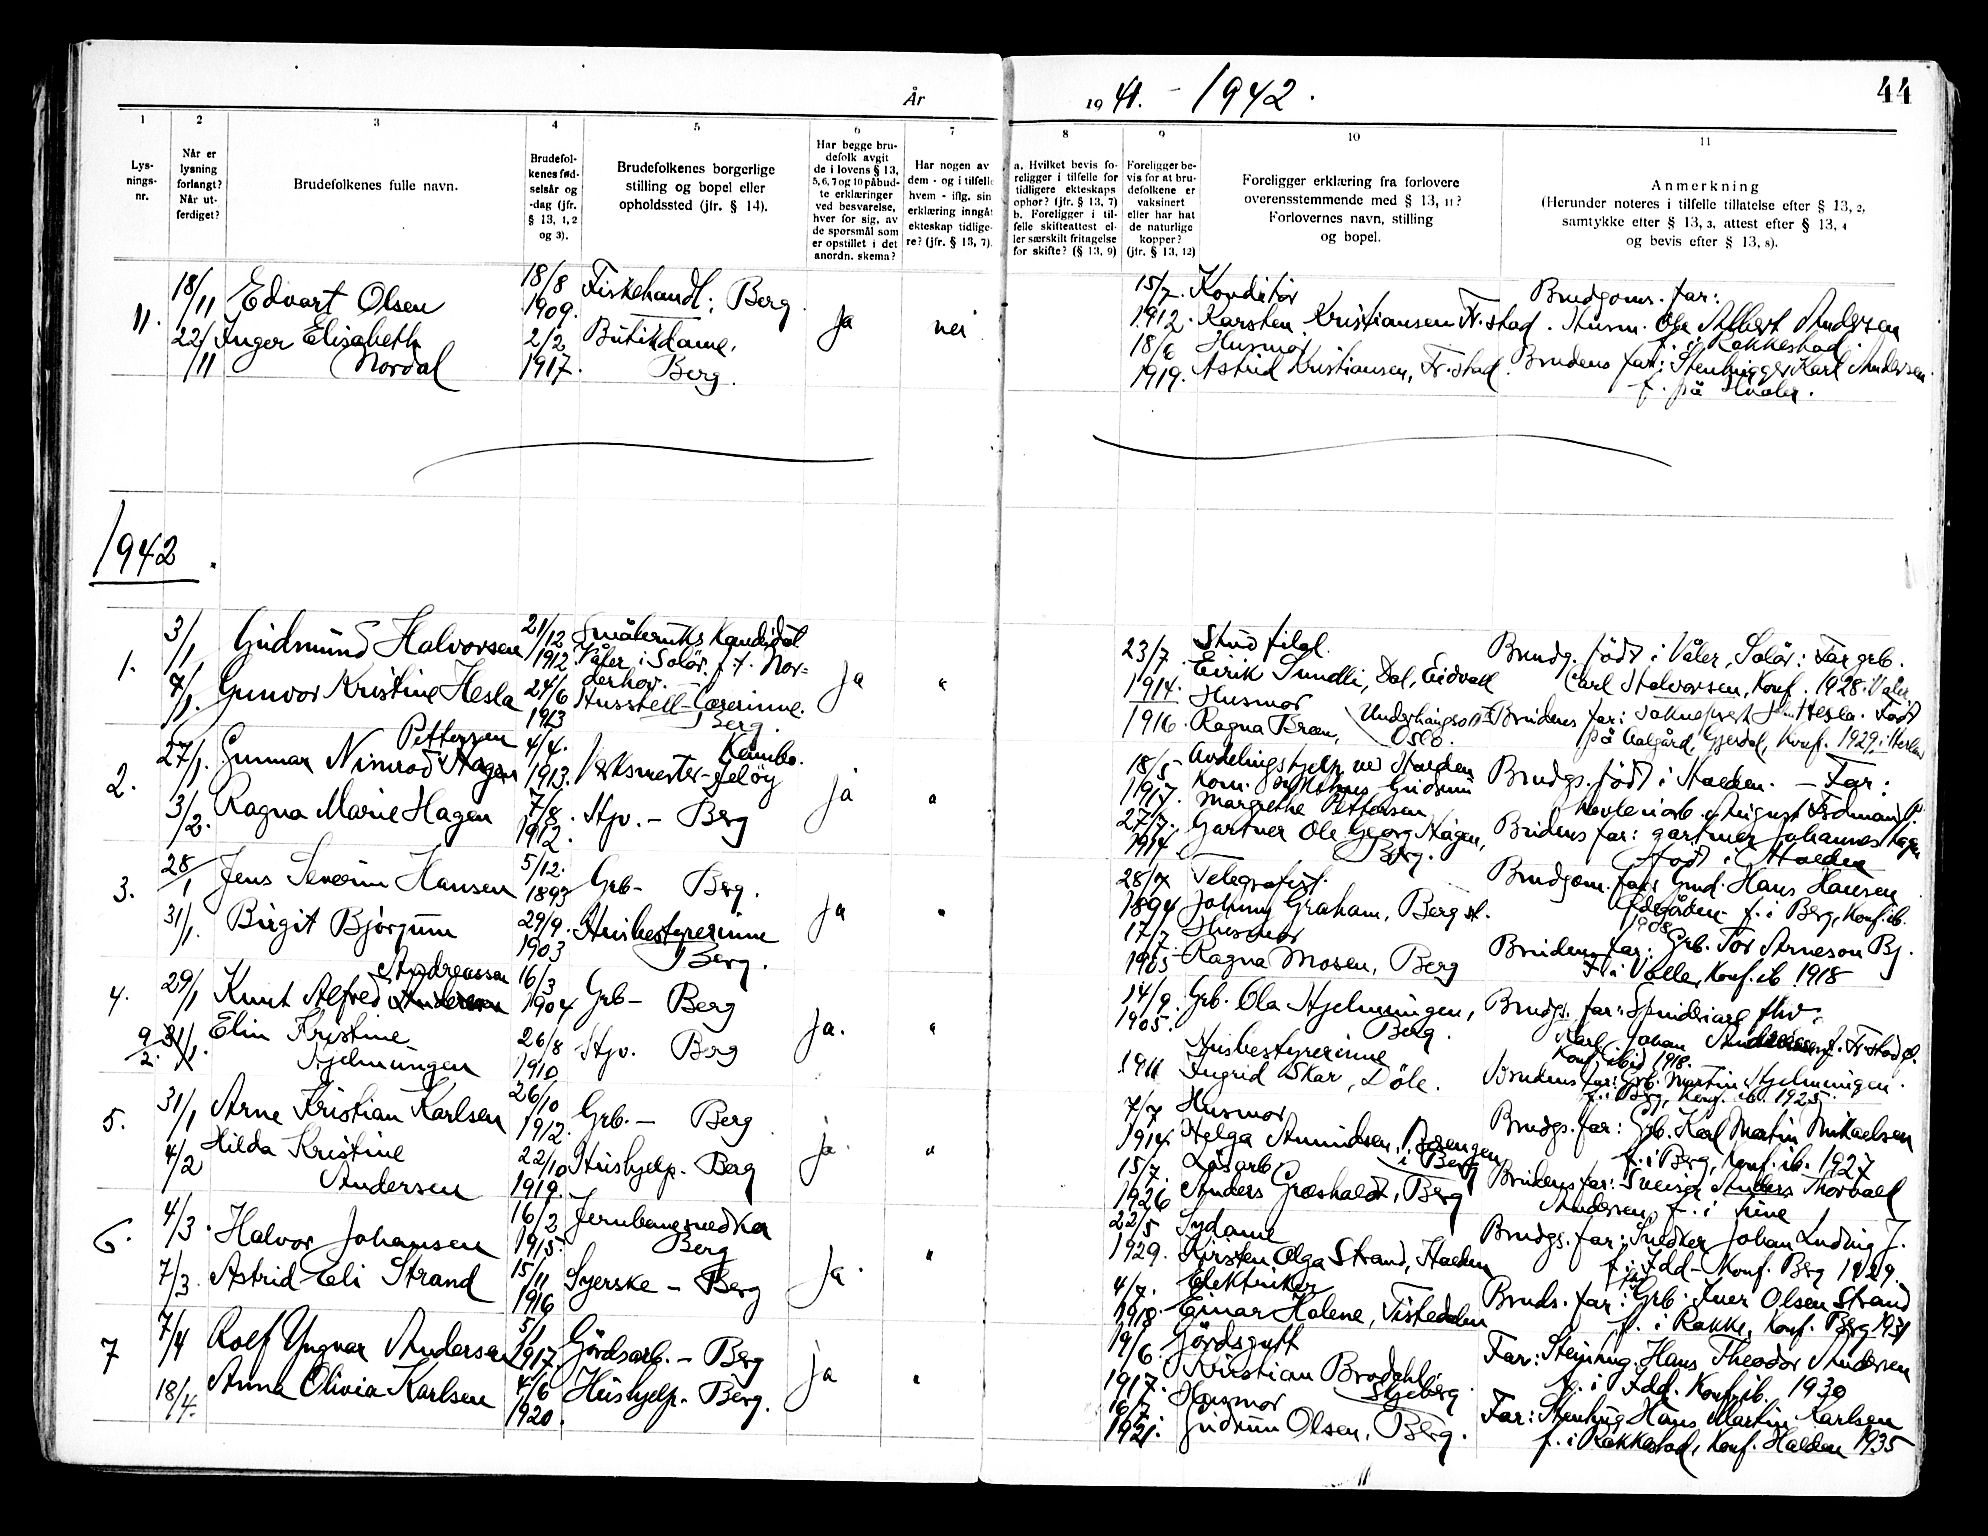 År 1941. - 1942.
44
1
2
3
4
5
6
7
8
9
10
11
Lys-
nings-
nr.
Når er
lysning
forlangt?
Når ut-
ferdiget?
Brudefolkenes fulle navn.
Brudefol-
kenes fød-
selsår og
-dag (jfr.
§ 13, 1, 2
og 3).
Brudefolkenes borgerlige
stilling og bopel eller
opholdssted (jfr. § 14).
Har begge bru-
defolk avgit
de i lovens § 13,
5, 6, 7 og 10 påbud-
te erklæringer
ved besvarelse,
hver for sig, av
de spørsmål som
er opstillet i det
anordn. skema?
Har nogen av
dem - og i tilfelle
hvem - iflg. sin
erklæring inngåt
ekteskap tidlige-
re? (jfr. § 13, 7).
a. Hvilket bevis fo-
religger i tilfelle for
tidligere ekteskaps
ophør? (jfr. § 13, 7)
b. Foreligger i til-
felle skifteattest el-
ler særskilt fritagelse
for skifte? (§ 13, 9)
Foreligger be-
vis for at bru-
defolkene er
vaksinert
eller har hat
de naturlige
kopper?
(jfr. § 13, 12)
Foreligger erklæring fra forlovere
overensstemmende med § 13, 11?
Forlovernes navn, stilling
og bopel.
Anmerkning
(Herunder noteres i tilfelle tillatelse efter § 13, 2,
samtykke efter § 13, 3, attest efter § 13, 4
og bevis efter § 13, 8).
11.
18/11
Edvart Olsen
18/8
1909.
Fiskehandl. Berg
22/11
Inger Elisabeth
Nordal
2/2
1917.
Butikdame,
Berg.
Ja
nei
15/7.
1912.
Konditor
Karsten Kristiansen Fr.stad.
18/6
1919.
Husmor
Astrid Kristiansen, Fr.stad.
Brudgoms. far:
Albert Andersen
f. i Rakkestad
Brudens far: Stenhugger Karl Andersen
f. på Hvaler.
1942.
1.
3/1
Gudmund Halvorsen
21/12
1912.
Småbruks Kandidat
Våler i Solør. f. t. Nor-
derhov.
7/1.
Gunvor Kristine Hesla
24/6
1913
Husstell-Lærerinne.
Berg.
Ja
"
23/7
1914.
Stud. filol.
Eirik Sundli, Dal, Eidvoll
1916.
Husmor
Ragna Bræn,
Oslo.
Brudg. født i Våler, Solør: Far grb.
Carl Halvorsen, Konf. 1928 i Våler
Brudens far: Hesla. Født
på Aalgård, Gjesdal, Konf. 1929 i
2.
27/1.
Pettersen
Gunnar Nimrod Hagen
4/4.
1913.
Kambo.
Verksmester - Jeløy
3/2.
Ragna Marie Hagen
7/8.
1912.
Hjv. - Berg
Ja
"
18/5
1917.
Gudrun
Margrethe Pettersen
27/7.
1914.
Gartner Ole Georg Hagen,
Berg.
Brudgs. født i Halden. - Far:
Brudens far: gartner Johannes Hagen
født i Halden
3.
28/1
Jens Severin Hansen
5/12.
1893
Grb- Berg.
31/1.
Birgit Bjørgum
29/9.
1903
Husbestyrerinne
Berg.
Ja
"
28/7
1894
Telegrafist.
Johnny Graham, Berg st.
17/7
1905
Husmor
Ragna Mosen, Berg
Brudgom. far: Gmd. Hans Hansen
f. i Berg, Konf. ib.
1908
Brudens far: Grb. Tor Arneson Bj.
f. i Valle, Konf. ib 1918
4.
29/1
Andreassen
Knut Alfred Andersen
16/3
1904
Grb- Berg
9/2.
31/1.
Elin Kristine
Hjelmungen
26/8
1910
Hjv. Berg
Ja.
"
14/9
1905.
Grb. Ola Hjelmungen,
Berg.
1911
Husbestyrerinne
Ingrid Skar, Døle.
Karl Johan Andreassen f. Fr.stad
Konf. ibid 1918.
Brudens far: Grb. Martin Hjelmungen.
f. i Berg, Konf. ib. 1925.
5.
31/1
Arne Kristian Karlsen
26/10
1912.
Grb. - Berg
4/2
Hilda Kristine
Andersen
22/10
1919.
Hushjelp. Berg
ja.
"
7/7
1914.
Husmor
Helga Amundsen,
i Berg
15/7.
1926
Løsarb.
Anders Græshaldt, Berg
Brudgs. far: Grb. Karl Martin Mikaelsen
f. i Berg, Konf. ib. 1927
Brudens far: Sveiser Anders Thorvald
Andersen, f. i
6.
4/3.
Halvor Johansen
16/2
1915.
Jernbanesnedker
Berg
7/3.
Astrid Eli Strand
15/11
1916
Syerske - Berg
Ja.
"
22/5
1929.
Sydame
Kirsten Olga Strand, Halden
4/7.
1918.
Elektriker
Einar Halene, Tistedalen
Brudgs. far: Snedker Johan Ludvig J.
f. i Idd - Konf. Berg 1929.
Bruds. far: Grb. Iver Olsen Strand
f. i Rakke, Konf. Berg 1931
7
7/4
Rolf Yngvar Andersen
5/1
1917
Gårdsarb. - Berg
18/4.
Anna Olivia Karlsen
4/6
1920.
Hushjelp. Berg.
Ja
"
19/6.
1917.
Gårdsgutt
Kristian Brodahl,
Skjeberg.
16/7
1921.
Husmor
Gudrun Olsen, Berg.
Far: Stenhug. Hans Theodor Andersen
f. i Idd. Konf. ib. 1930
Far: Stenhug Hans Martin Karlsen
f. i Rakkestad, Konf. Halden 1935